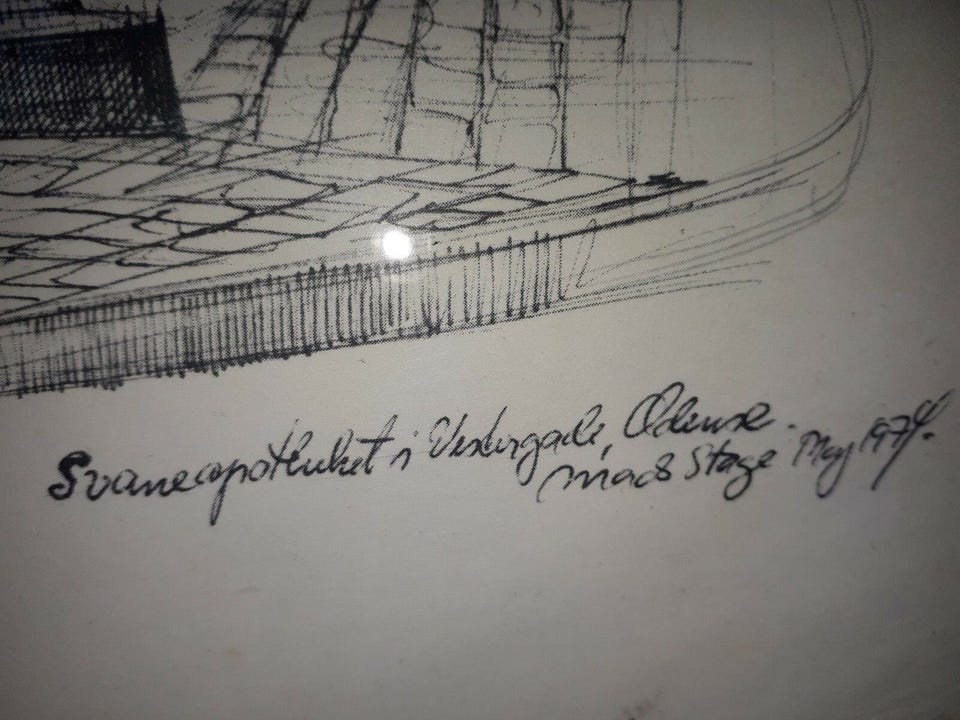 Svaneapotheket i Vestergade, Odense.
Mads Stage May 1974.